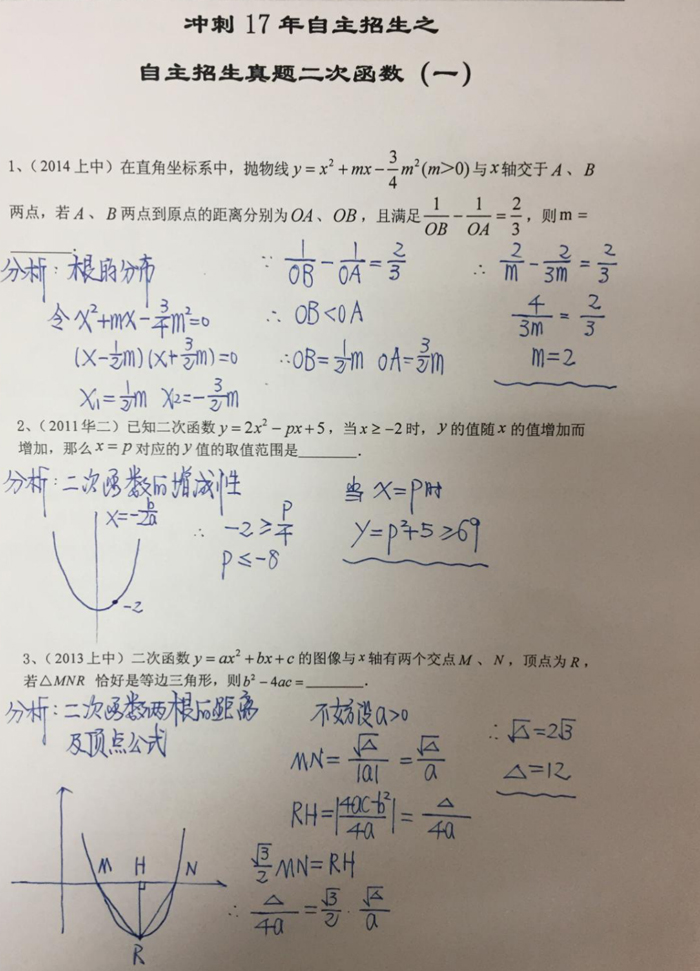 冲刺 17 年自主招生之
自主招生真题二次函数（一）
1、（2014 上中）在直角坐标系中，抛物线 y = x² + mx − 3/4 m² (m>0) 与 x 轴交于 A 、 B
两点，若 A 、 B 两点到原点的距离分别为 OA 、 OB ，且满足 1/OB − 1/OA = 2/3 ，则 m =
________.
分析：根的分布
令 x²+mx−3/4m²=0
(x−1/2m)(x+3/2m)=0
x₁=1/2m x₂=−3/2m
∵ 1/OB − 1/OA = 2/3
∴ OB<OA
∴OB=1/2m OA=3/2m
∴ 2/m − 2/3m = 2/3
4/3m = 2/3
m=2
2、（2011 华二）已知二次函数 y = 2x² − px + 5 ，当 x ≥ −2 时， y 的值随 x 的值增加而
增加，那么 x = p 对应的 y 值的取值范围是________.
分析：二次函数的增减性
x=−b/2a
-2
∴ −2 ≥ p/4
p ≤ −8
当 x=p时
y=p²+5 ≥69
3、（2013 上中）二次函数 y = ax² + bx + c 的图像与 x 轴有两个交点 M 、 N ，顶点为 R ，
若△MNR 恰好是等边三角形，则 b² − 4ac = ________.
分析：二次函数两根的距离
及顶点公式
M H N
R
不妨设a>0
MN= √△/|a| = √△/a
RH=|4ac-b²/4a|= △/4a
√3/2 MN=RH
∴ △/4a = √3/2 · √△/a
∴ √△=2√3
△=12